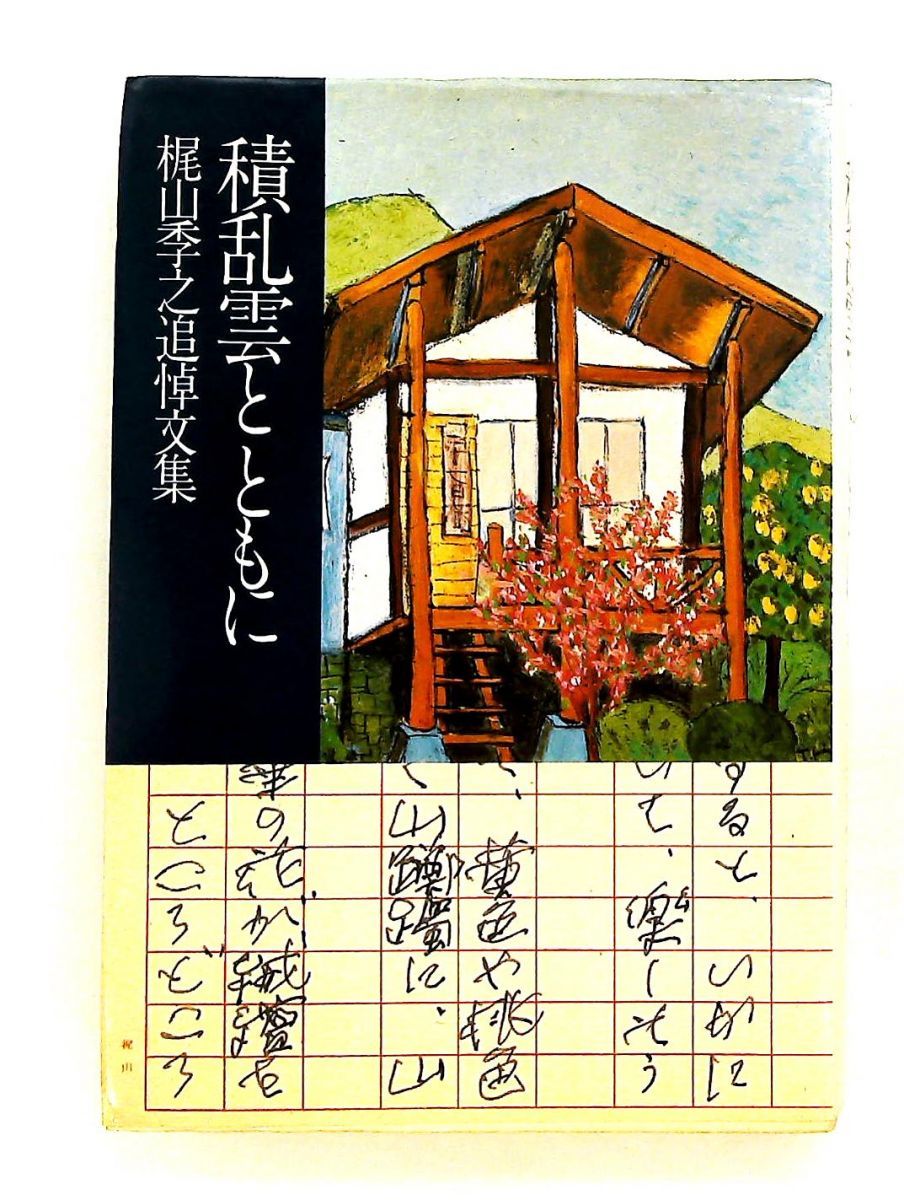 積乱雲とともに
梶山季之追悼文集
すると、いかに
いて、楽しそう
、菫色や桃色
山躑躅に、山
の花が、絨毯を
ところどころ
梶山